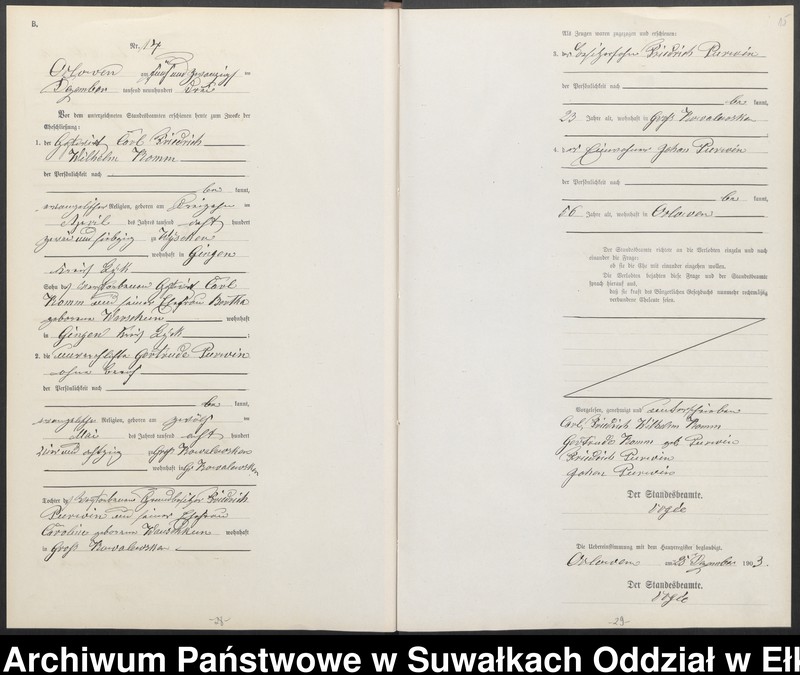 B.
Nr. 17
Orlowen am fünf und zwanzigsten
Dezember tausend neunhundert drei
Vor dem unterzeichneten Standesbeamten erschienen heute zum Zwecke der
Eheschließung:
1. der Carl Friedrich
Wilhelm Komm
der Persönlichkeit nach
be kannt,
evangelischer Religion, geboren am dreizehn
April des Jahres tausend acht hundert
zwei und siebzig zu
wohnhaft in Gingen
Kreis Lyck
Sohn des verstorbenen Carl
Komm und seiner Ehefrau Bertha
geborenen wohnhaft
in Gingen Kreis Lyck ;
2. die unverehelichte Gertrude Purwin
ohne Beruf
der Persönlichkeit nach
be kannt,
evangelischer Religion, geboren am zwölften
Mai des Jahres tausend acht hundert
und achtzig zu Groß Kowalewsken
wohnhaft in Gr Kowalewsken
Tochter des verstorbenen Grundbesitzer Friedrich
Purwin und seiner Ehefrau
Caroline geborenen wohnhaft
in Groß Kowalewsken
-28-
Als Zeugen waren zugezogen und erschienen:
3. der Besitzersohn Friedrich Purwin
der Persönlichkeit nach
be kannt,
23 Jahre alt, wohnhaft in Groß Kowalewsken
4. der Einwohner Johan Purwin
der Persönlichkeit nach
be kannt,
56 Jahre alt, wohnhaft in Orlowen
Der Standesbeamte richtete an die Verlobten einzeln und nach
einander die Frage:
ob sie die Ehe mit einander eingehen wollen.
Die Verlobten bejahten diese Frage und der Standesbeamte
sprach hierauf aus,
daß sie kraft des Bürgerlichen Gesetzbuchs nunmehr rechtmäßig
verbundene Eheleute seien.
Vorgelesen, genehmigt und unterschrieben
Carl Friedrich Wilhelm Komm
Gertrude Komm geb Purwin
Friedrich Purwin
Johan Purwin
Der Standesbeamte.
Vogée
Die Uebereinstimmung mit dem Hauptregister beglaubigt.
Orlowen am 25 Dezember 1903.
Der Standesbeamte.
Vogée
-29-
Archiwum Państwowe w Suwałkach Oddział w Ełk